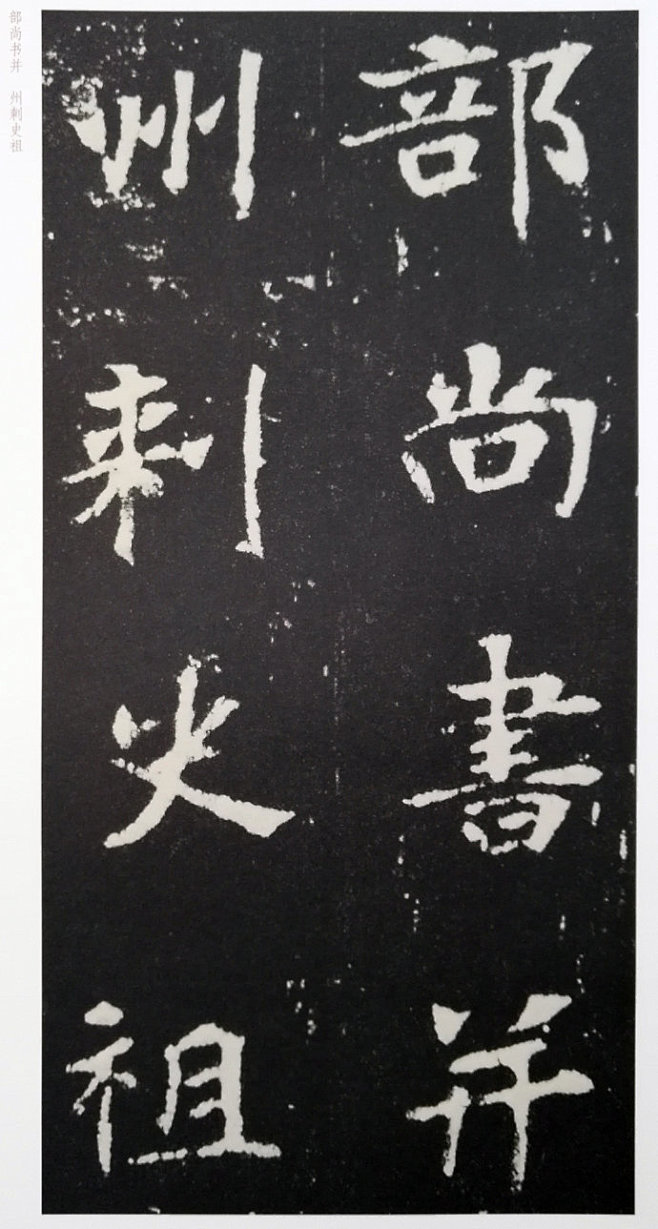 部尚書并
州刺史祖
部尚书并 州刺史祖